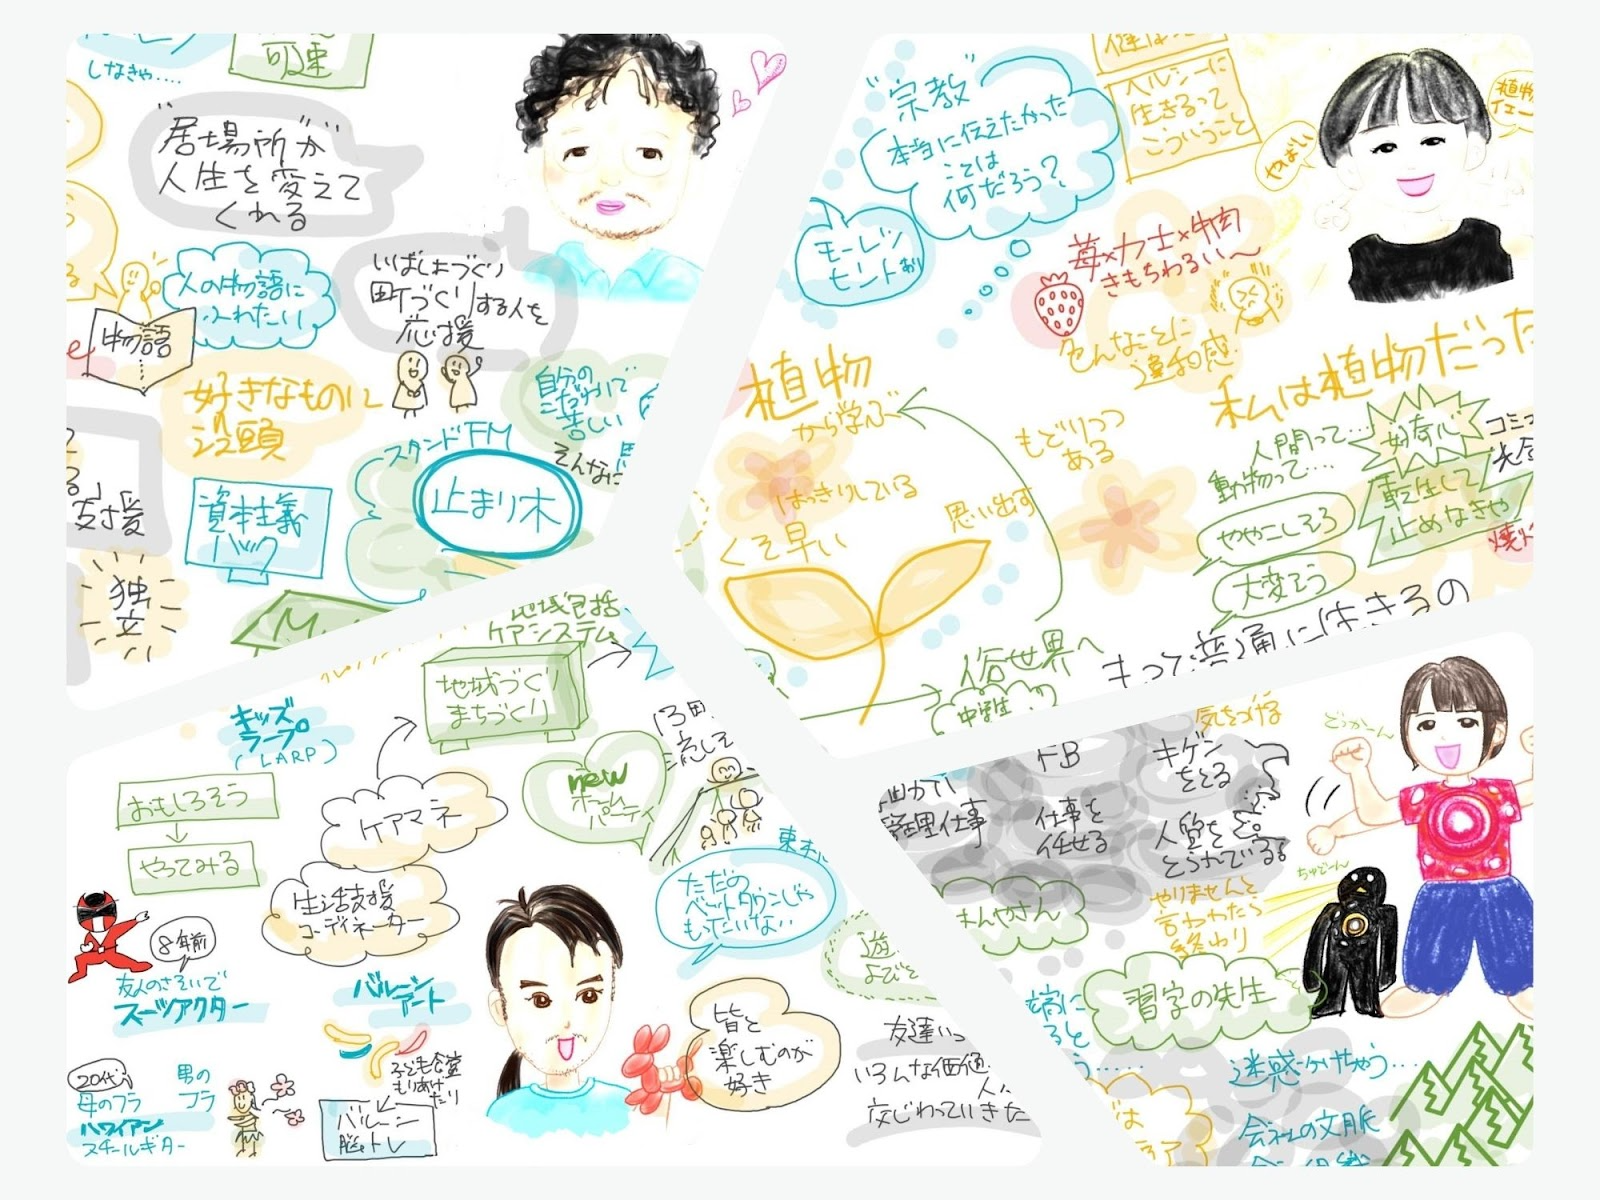 しなきゃ....
可速
"居場所"が
人生を変えて
くれる
人の物語に
ふれたい
物語
いばしょづくり
町づくりする人を
応援
好きなものに
没頭
自分の
こだわりで
苦しい
そんなに
スタンドFM
止まり木
資本主義
ハック
支援
独立
"宗教"
本当に伝えたかった
ことは
何だろう?
モーレツ
ヒント
ヘルシーに
生きるって
こういうこと
やばい
植物
イェー
苺×力士×牛肉
きもちわるい〜
色んなことに
違和感
植物
から学ぶ
はっきりしている
くそ早い
思い出す
もどりつつ
ある
私は植物だった
人間って...
動物って...
ややこしそう
大変そう
好奇心
転生して
止めなきゃ
コミュ
俗世界へ
中学生
もっと普通に生きるの
地域包括
ケアシステム
地域づくり
まちづくり
キッズ
ラープ
(LARP)
おもしろそう
やってみる
ケアマネ
生活支援
コーディネーター
new
ホーム
パーティ
流して
ただの
ベットタウンじゃ
もったいない
8年前
友人のさそいで
スーツアクター
バルーン
アート
子ども食堂
もりあげ
たり
バルーン
脳トレ
20代
母のフラ
ハワイアン
スチールギター
男の
フラ
皆と
楽しむのが
好き
友達いっ
いろんな価値
人
交じわっていきた
気をつける
FB
キゲン
をとる
管理仕事
仕事を
任せる
人質を
とられている
やりませんと
言わわたら
終わり
まんやさん
習字の先生
どっかーん
ちゅどーん
迷惑かけちゃう...
会社の文脈